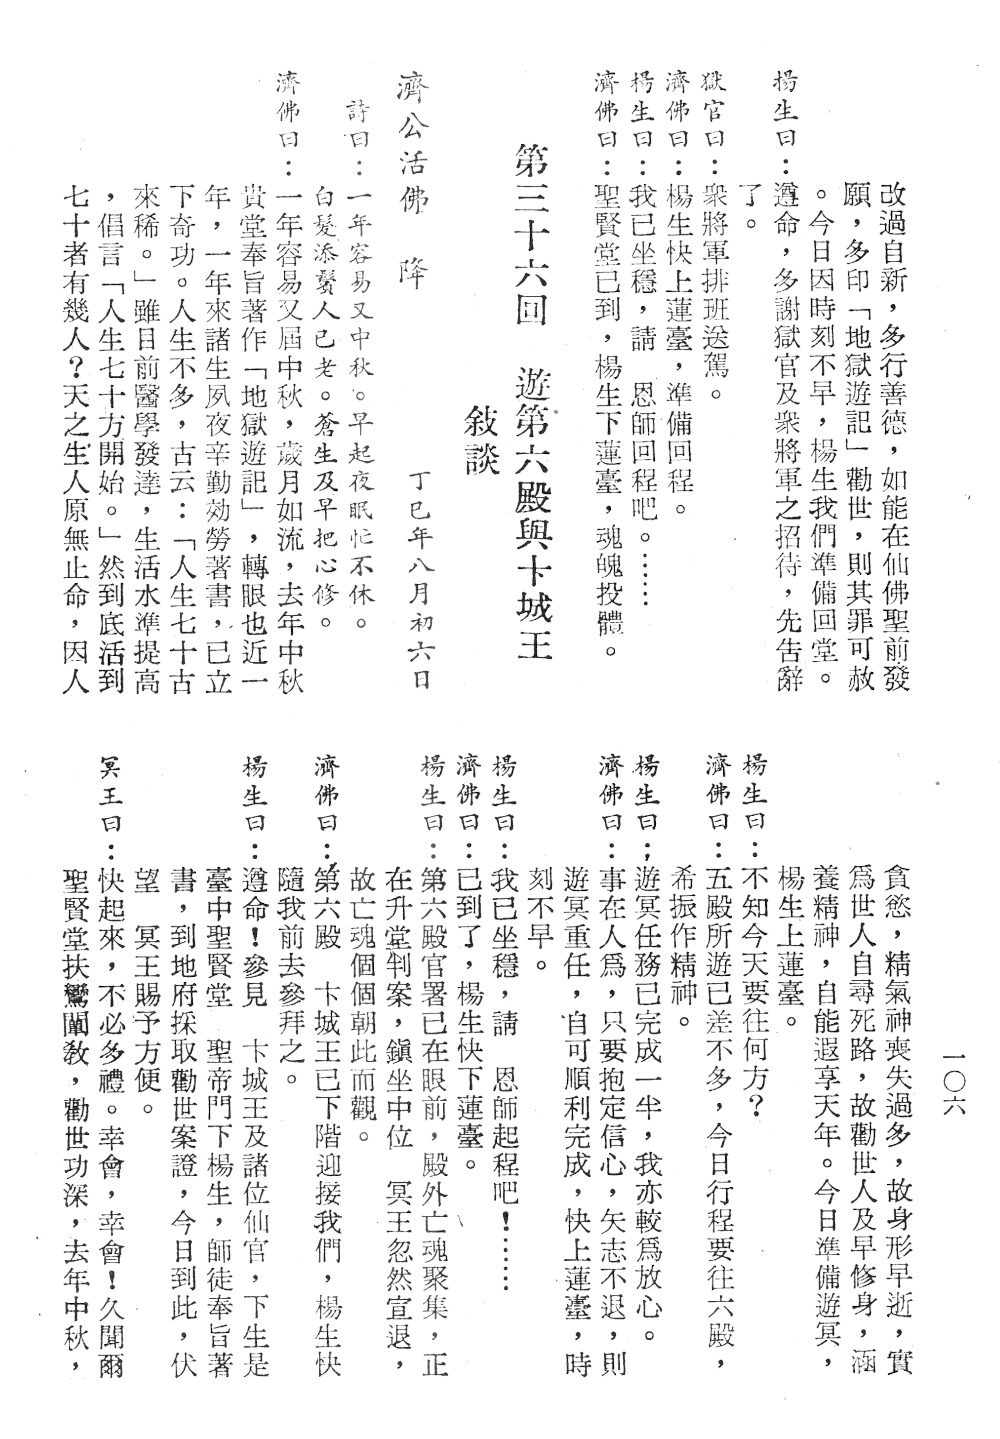 改過自新，多行善德，如能在仙佛聖前發
願，多印「地獄遊記」勸世，則其罪可赦
。今日因時刻不早，楊生我們準備回堂。
楊生曰：遵命，多謝獄官及衆將軍之招待，先告辭
了。
獄官曰：衆將軍排班送駕。
濟佛曰：楊生快上蓮臺，準備回程。
楊生曰：我已坐穩，請　恩師回程吧。……
濟佛曰：聖賢堂已到，楊生下蓮臺，魂魄投體。
第三十六回　遊第六殿與卞城王
敍談
濟公活佛　降　丁巳年八月初六日
詩曰：一年容易又中秋。早起夜眠忙不休。
白髮添鬢人已老。蒼生及早把心修。
濟佛曰：一年容易又屆中秋，歲月如流，去年中秋
貴堂奉旨著作「地獄遊記」，轉眼也近一
年，一年來諸生夙夜辛勤効勞著書，已立
下奇功。人生不多，古云：「人生七十古
來稀。」雖目前醫學發達，生活水準提高
，倡言「人生七十方開始。」然到底活到
七十者有幾人？天之生人原無止命，因人
貪慾，精氣神喪失過多，故身形早逝，實
爲世人自尋死路，故勸世人及早修身，涵
養精神，自能遐享天年。今日準備遊冥，
楊生上蓮臺。
楊生曰：不知今天要往何方？
濟佛曰：五殿所遊已差不多，今日行程要往六殿，
希振作精神。
楊生曰；遊冥任務已完成一半，我亦較爲放心。
濟佛曰：事在人爲，只要抱定信心，矢志不退，則
遊冥重任，自可順利完成，快上蓮臺，時
刻不早。
楊生曰：我已坐穩，請　恩師起程吧！……
濟佛曰：已到了，楊生快下蓮臺。
楊生曰：第六殿官署已在眼前，殿外亡魂聚集，正
在升堂判案，鎭坐中位　冥王忽然宣退，
故亡魂個個朝此而觀。
濟佛曰：第六殿　卞城王已下階迎接我們，楊生快
隨我前去參拜之。
楊生曰：遵命！參見　卞城王及諸位仙官，下生是
臺中聖賢堂　聖帝門下楊生，師徒奉旨著
書，到地府採取勸世案證，今日到此，伏
望　冥王賜予方便。
冥王曰：快起來，不必多禮。幸會，幸會！久聞爾
聖賢堂扶鸞闡敎，勸世功深，去年中秋，
一〇六